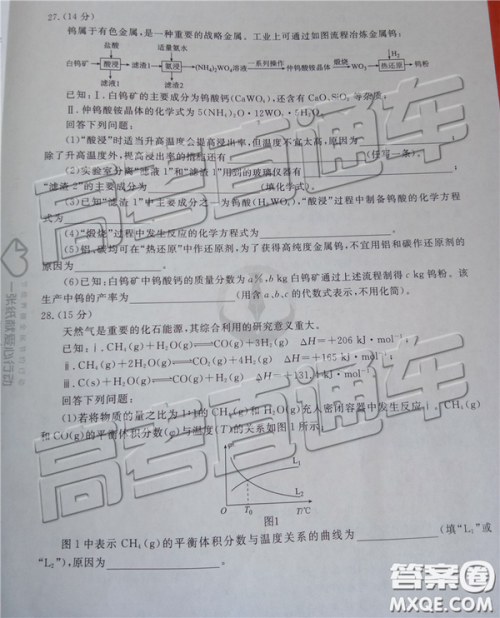 27.(14分)
钨属于有色金属,是一种重要的战略金属。工业上可通过如图流程冶炼金属钨:
盐酸 适量氨水 H₂
白钨矿 酸浸 滤渣1 氨浸 (NH₄)₂WO₄溶液 一系列操作 仲钨酸铵晶体 煅烧 WO₃ 热还原 钨粉
滤液1 滤渣2
已知:Ⅰ.白钨矿的主要成分为钨酸钙(CaWO₄),还含有CaO、SiO₂等杂质;
Ⅱ.仲钨酸铵晶体的化学式为5(NH₄)₂O·12WO₃·5H₂O
回答下列问题:
(1)“酸浸”时适当升高温度会提高浸出率,但温度不宜太高,原因为
除了升高温度外,提高浸出率的措施还有 (任写一条)。
(2)实验室分离“滤液1”和“滤渣1”用到的玻璃仪器有 ;
“滤渣2”的主要成分为 (填化学式)。
(3)已知“滤渣1”中主要成分之一为钨酸(H₂WO₄),“酸浸”过程中制备钨酸的化学方程
式为
(4)“煅烧”过程中发生反应的化学方程式为
(5)铝、碳均可在“热还原”中作还原剂,为了获得高纯度金属钨,不宜用铝和碳作还原剂的
原因为 。
(6)已知:白钨矿中钨酸钙的质量分数为a%,b kg白钨矿通过上述流程制得c kg钨粉。该
生产中钨的产率为 (用含a、b、c的代数式表示,不用化简)。
28.(15分)
天然气是重要的化石能源,其综合利用的研究意义重大。
已知:ⅰ.CH₄(g)+H₂O(g)⇌CO(g)+3H₂(g) ΔH=+206 kJ·mol⁻¹
ⅱ.CH₄(g)+2H₂O(g)⇌CO₂(g)+4H₂(g) ΔH=+165 kJ·mol⁻¹
ⅲ.C(s)+H₂O(g)⇌CO(g)+H₂(g) ΔH=+131.4 kJ·mol⁻¹
回答下列问题:
(1)若将物质的量之比为1:1的CH₄(g)和H₂O(g)充入密闭容器中发生反应ⅰ。CH₄(g)
和CO(g)的平衡体积分数(φ)与温度(T)的关系如图1所示:
φ
L₁
L₂
O T₀ T/℃
图1
图1中表示CH₄(g)的平衡体积分数与温度关系的曲线为 (填“L₁”或
“L₂”),原因为 。
高考直通车
高考直通车
高考直通车
答案圈
MXQE.COM